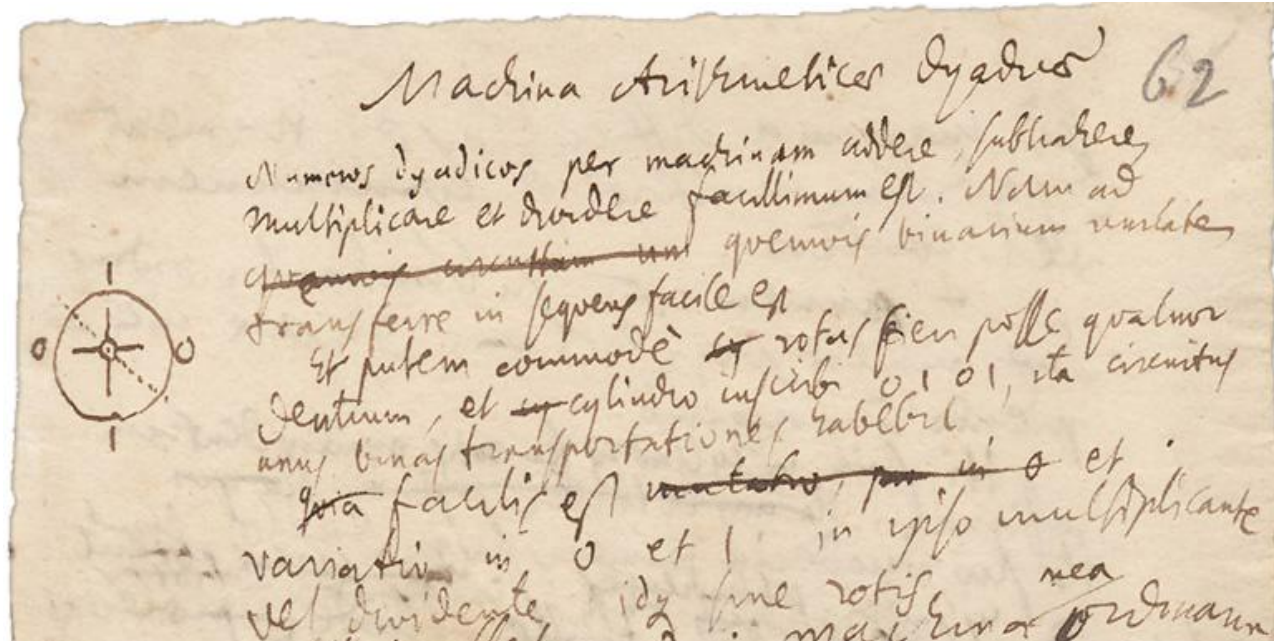 Machina Arithmeticae dyadicae
62
Numeros dyadicos per machinam addere, subtrahere,
multiplicare et dividere facillimum est. Nam ad
quemvis binarium unitatem
transferre in sequens facile est
Et putem commodè rotas fieri posse quatuor
dentium, et cylindro inscribi 0 1 0 1, ita circuitus
unus binas transportationes habebit
quia facilis est mutatio, in 0 et
variatio in 0 et 1 in ipso multiplicante
vel dividente idq sine rotis,
mea
machina ordinaria
1
0 0
1